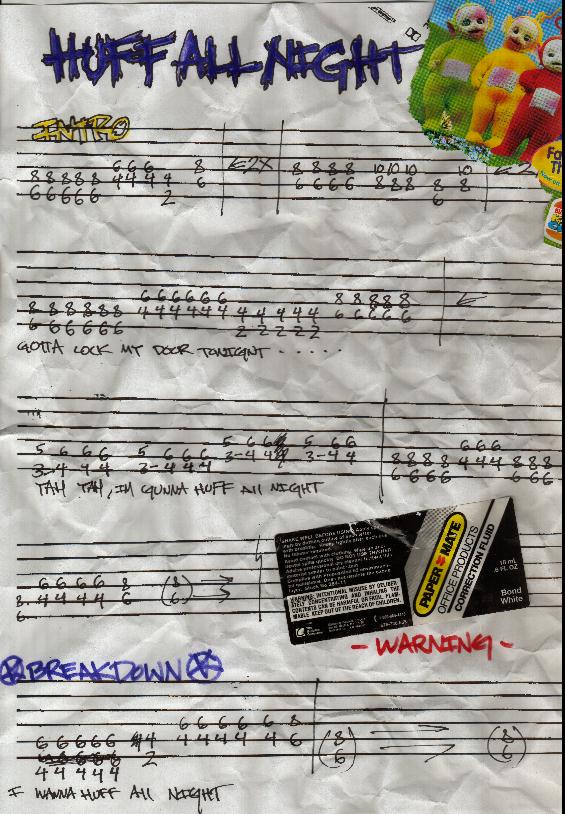 HUFF ALL NIGHT
INTRO
6 6 6 8
8 8 8 8 8 4 4 4 4 6 ←2X 8 8 8 8 10 10 10 10
6 6 6 6 6 2 6 6 6 6 8 8 8 8 8
6
6 6 6 6 6 6 8 8 8 8 8
8 8 8 8 8 8 4 4 4 4 4 4 4 4 4 4 4 6 6 6 6 6 ←
6 6 6 6 6 6 2 2 2 2 2
GOTTA LOCK MY DOOR TONIGHT . . . . . .
5 6 6 6 5 6 6 6 5 6 6 5 6 6 6 6 6
3-4 4 4 3-4 4 4 3-4 4 3-4 4 8 8 8 8 4 4 4 8 8 8
6 6 6 6 6 6 6
TAH TAH, IM GUNNA HUFF All NIGHT
6 6 6 6 8 (8)
8 4 4 4 4 6 (6) →
6
PAPER MATE
OFFICE PRODUCTS
CORRECTION FLUID
18 mL
.6 FL OZ
Bond
White
WARNING: INTENTIONAL MISUSE BY DELIBERATELY CONCENTRATING AND INHALING THE CONTENTS CAN BE HARMFUL OR FATAL. FLAMMABLE. KEEP OUT OF THE REACH OF CHILDREN.
- WARNING -
BREAKDOWN
6 6 6 6 6 8
6 6 6 6 6 4 4 4 4 4 4 6 (8) → (8)
4 4 4 4 4 2 (6) → (6)
I WANNA HUFF All NIGHT